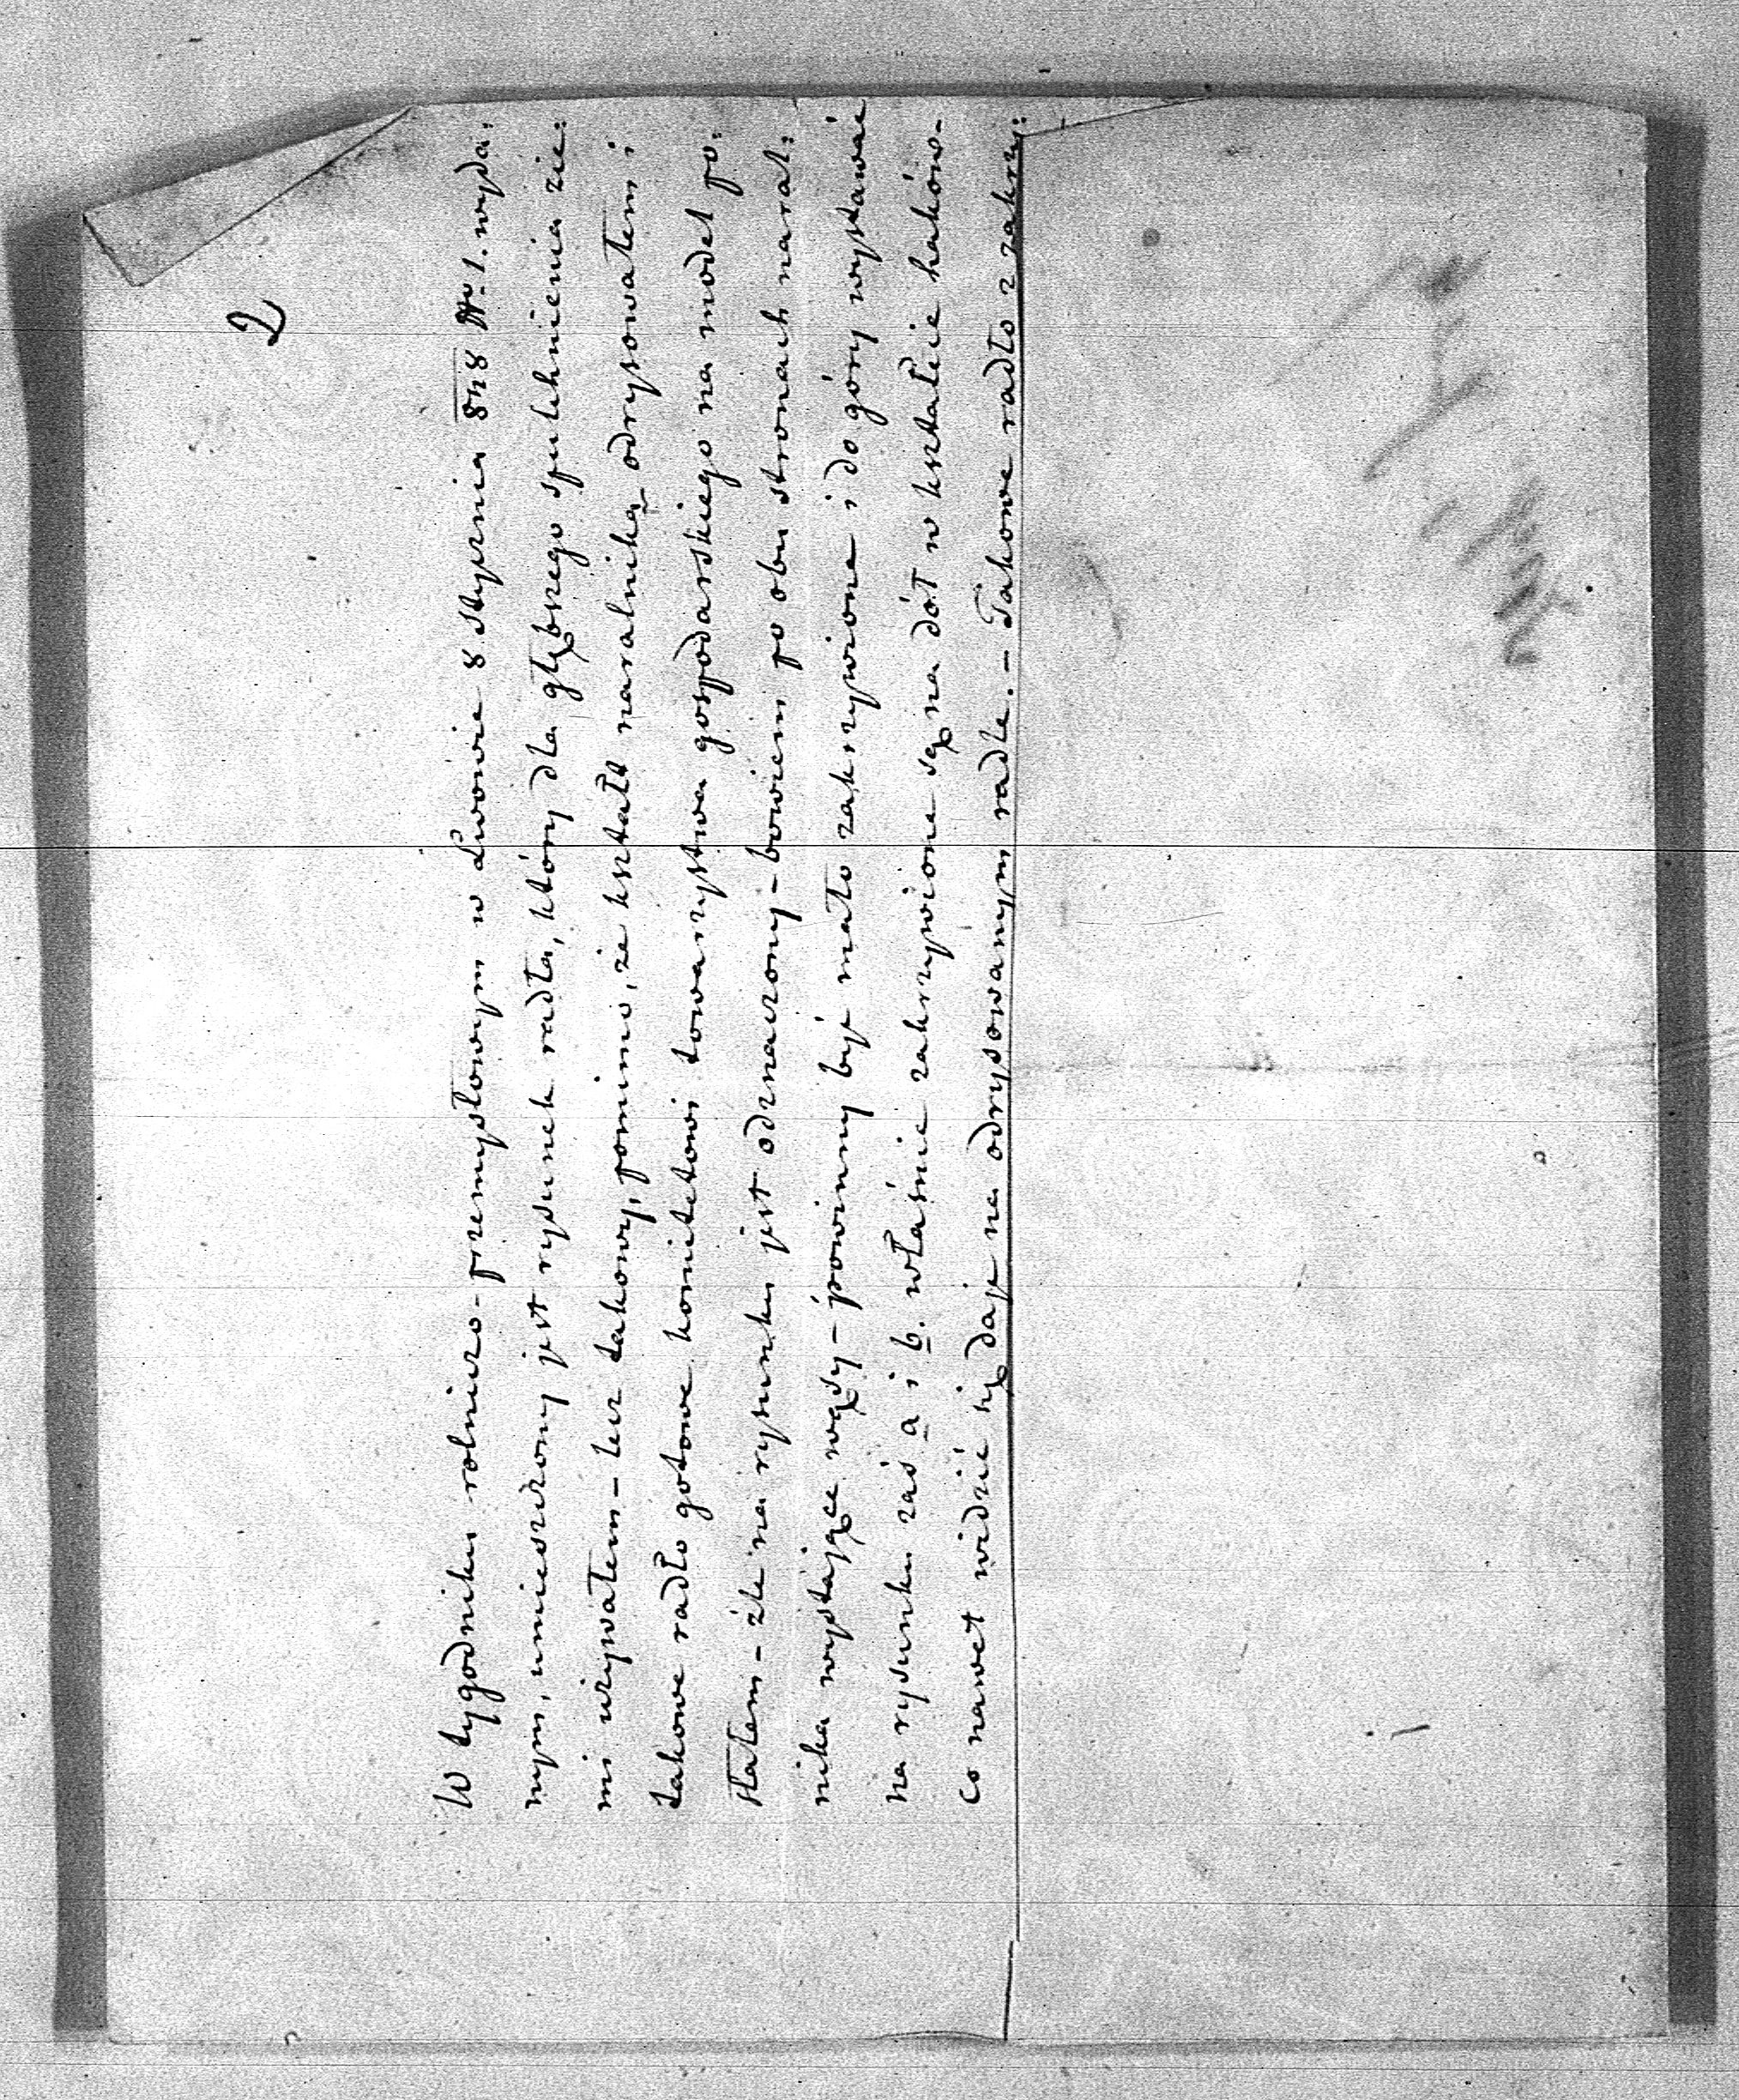 2
W tygodniku rolniczo-przemysłowym w Lwowie 8 stycznia 848 No. 1. wyda:
nym, umieszczony jest rysunek radła, który dla głębszego spulchnienia zie:
mi używałem - lecz takowy, pomimo, że kształt naralnika odrysowałem i
takowe radło gotowe komitetowi towarzystwa gospodarskiego na model po:
słałem - źle na rysunku jest odznaczony - bowiem po obu stronach naral:
nika wystające wąsy - powinny być mało zakrzywione i do góry wystawać
na rysunku zaś a i b. właśnie zakrzywione są na dół w kształcie haków -
co nawet widzić się daje na odrysowanym radle. - Takowe radło z zakrzy: